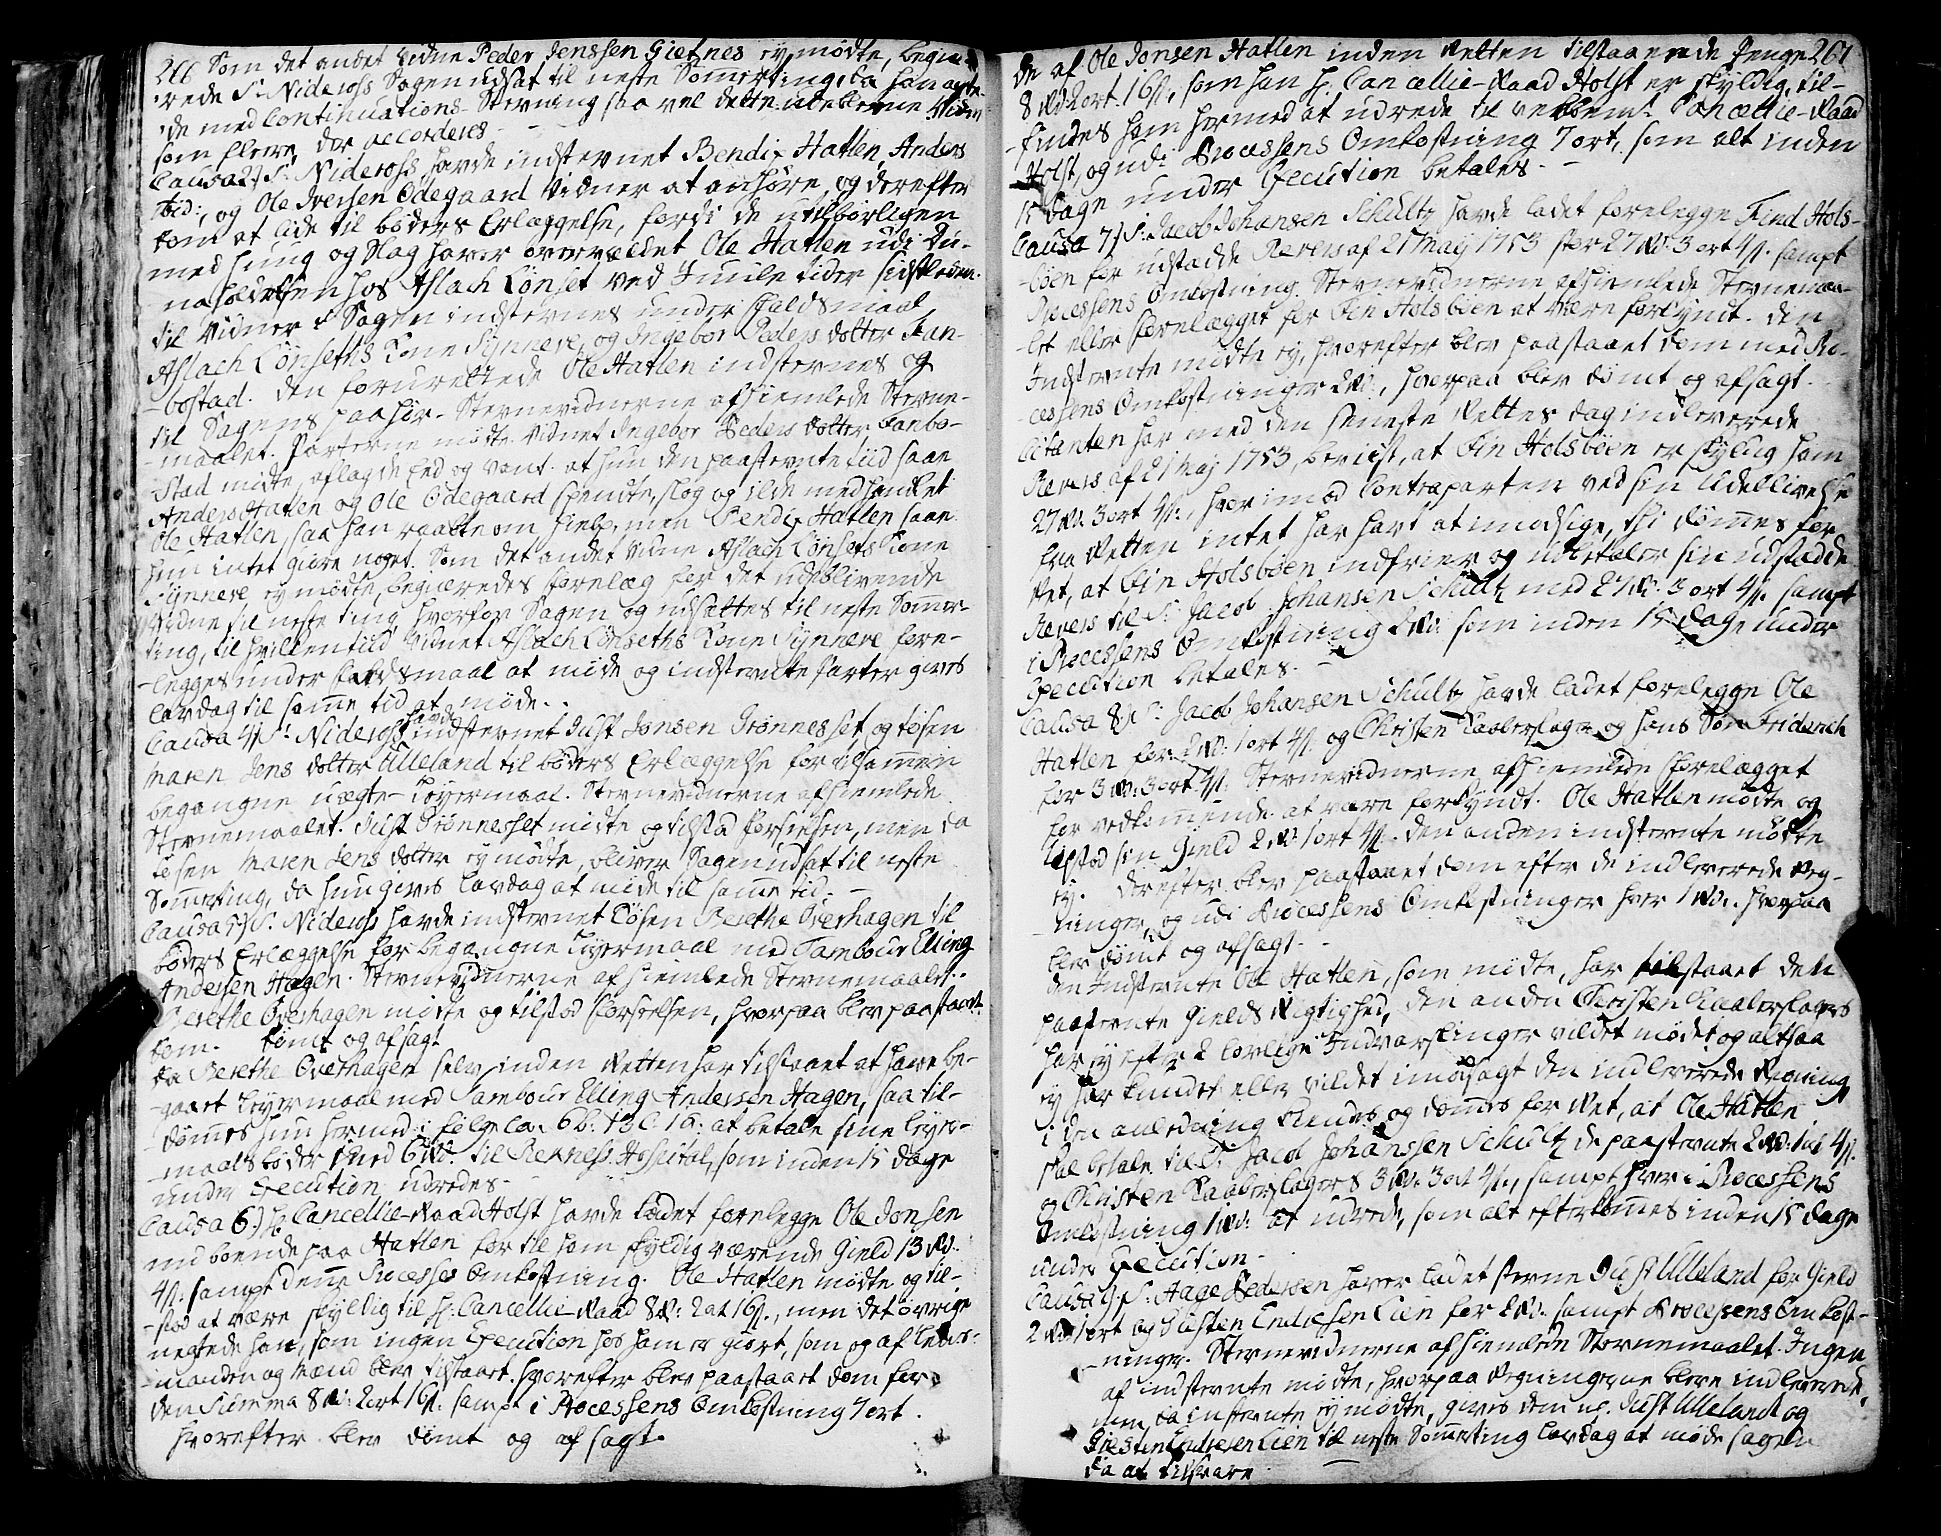 266 Som det andet Vidne Peder Jenssen Gietnes ey mødte, begiæ-
rede S: Nideross Sagen udsat til neste Sommerting, da han agte-
de med Continuations-Stevning saa vel dette udeblevne Vidne
som fleere der accorderes.
Causa 2) S: Nideross havde indstevnet Bendix Hatlen, Anders
ibid:, og Ole Iversen Ødegaard Vidner at anhøre, og derefter
Dom at lide til bøders Erlæggelse, fordi de utilbørligen
med hung og Slag haver overvældet Ole Hatlen udi Du-
hos Aslach Lønset ved Juule tider sidstleden.
til Vidner i Sagen indstevnes under faldsmaal
Aslach Lønseths Kone Synneve, og Ingebor Peders dotter Fan-
-bostad. Den forurettede Ole Hatlen indstevnes og
til Sagens paahør. Stevnevidnerne afhiemlede Stevne-
-maalet. Parterne mødte. Vidnet Ingebor Peders dotter Fanbo-
stad mødte, aflagde Eed og vant. at hun den paastevnte tiid saae
Anders Hatlen og Ole Ødegaard spendte, slog og ilde medhandlet
Ole Hatlen, saa han raabte om hielp, men Bendix Hatlen saae
hun intet giøre noget. Som det andet Vidne Aslach Lønsets Kone
Synneve ey mødte, begiæredes forelæg for det udeblivende
Vidne til neste ting, hvorfor Sagen og udsattes til neste Sommer-
ting, til hvilken tiid Vidnet Aslach Lønseths Kone Synneve fore-
-legges under faldsmaal at møde og indstevnte Parter gives
Lavdag til samme tid at møde.
Causa 4) S: Nideross havde indstevnet Just Jonsen Grønnesset og tøsen
Maren Jens dotter Ulleland til bøders Erlæggelse for tilsammen
begangne uægte-Leyermaal. Stevnevidnerne afhiemlede
Stevnemaalet. Just Grønnesset mødte og tilstod forseelsen, men da
tøsen Maren Jens dotter ey mødte, bliver Sagen udsat til neste
Sommerting, da hun gives Lavdag at møde til samme tid.
Causa 5) S: Nideross havde indstevnet tøsen Berethe Overhagen til
bøders Erlæggelse for begangne Leyermaal med Tambour Elling
Andersen Hagen. Stevnevidnerne afhiemlede Stevnemaalet.
Berethe Overhagen mødte og tilstod forseelsen, hvorpaa blev paastaaet
Dom. Dømt og afsagt
Da Berethe Overhagen selv inden Retten har tilstaaet at have be-
-gaaet Leyermaal med Tambour Elling Andersen Hagen, saa til-
dømmes hun hermed i følge Lov. 6 b: 13 C: 1 a: at betale sine Leyer-
maals bøder med 6 Rd. til Reknes Hospital, som inden 15 dage
under Execution udredes.
Causa 6) H: Cancellie-Raad Holst havde ladet forelegge Ole Jonsen
boende paa Hatlen for til ham skyldig værende Gield 13 Rd.
4 s. sampt denne Processes Omkostning. Ole Hatlen mødte og til-
-stod at være skyldig til H: Cancellie-Raad 8 R: 2 ort 16 s., men det øvrige
negtede han, som ingen Execution hos ham er giort, som og af Lens-
-manden og Mænd blev tilstaaet. Hvorefter blev paastaaet Dom for
den Summa 8 Rd: 2 ort 16 s. sampt i Processens Omkostning 7 ort.
Hvorefter blev dømt og afsagt.
De af Ole Jonsen Hatlen inden Retten tilstaaende Penge 267
8 Rd 2 ort 16 s., som han H: Cancellie-Raad Holst er skyldig, til-
-findes ham hermed at udrede til velbemt: Cancellie-Raad
Holst, og udi Processens Omkostning 7 ort, som alt inden
15 dage under Execution betales.
Causa 7) S: Jacob Johansen Schultz havde ladet forelegge Find Hols-
-bøen for udstædde Revers af 21 Maij 1753 stor 27 Rd: 3 ort 4 s. sampt
Processens Omkostning. Stevnevidnerne afhiemlede Stevnemaa-
-let eller forelægget for Fin Holsbøen at være forkyndt. Den
Indstevnte mødte ey, hvorefter blev paastaaet Dom med Pro-
-cessens Omkostninger 2 Rd., hvorpaa blev dømt og afsagt.
Citanten har med den seneste Rettes dag indleverede
Revers af 21 Maj 1753, beviist, at Fin Holsbøen er skyldig ham
27 Rd: 3 ort 4 s., hvorimod Contraparten ved sin Udeblivelse
fra Retten intet har havt at imodsige, thi dømmes for
Ret, at Fin Holsbøen indfrier og udbetaler sin udstædde
Revers til S: Jacob Johansen Schultz med 27 Rd: 3 ort 4 s. sampt
i Processens Omkostning 2 Rd: som inden 15 Dage under
Execution betales.
Causa 8) S: Jacob Johansen Schultz havde ladet forelegge Ole
Hatlen for 2 Rd: 1 ort 4 s. og Christen Kaaberslager og hans Søn Friderich
for 3 Rd: 3 ort 4 s. Stevnevidnerne afhiemlede forelægget
for vedkommende at være forkyndt. Ole Hatlen mødte og
tilstod sin Gield 2 Rd: 1 ort 4 s. Den anden indstevnte mødte
ey. Derefter blev paastaaet Dom efter de indleverede Reg-
-ninger, og udi Processens Omkostninger hver 1 Rd., hvorpaa
blev dømt og afsagt.
Den Indstevnte Ole Hatlen, som mødte, har tilstaaet den
paastevnte Gields Rigtighed, den anden Christen Kaaberslagers
har ey efter 2 lovlige Indvarslinger vildet mødet og altsaa
ey har kundet eller vildet imodsagt den indleverede Regning
i den anledning kiendes og dømmes for Ret, at Ole Hatlen
skal betale til S: Jacob Johansen Schultz de paastevnte 2 Rd: 1 ort 4 s.
og Christen Kaaberslagers 3 Rd: 3 ort 4 s., sampt hver i Processens
Omkostning 1 Rd: at udrede, som alt efterkommes inden 15 Dage
under Execution.
Causa 9) S: Aage Pedersen haver ladet stevne Just Ulleland for Gield
2 Rd 1 ort og Christen Endresen Lien for 2 Rd. sampt Processens Omkost-
-ninger. Stevnevidnerne afhiemlede Stevnemaalet. Ingen
af indstevnte mødte, hvorpaa Regningerne bleve indleverede,
men da instevnte ey mødte, gives dem nl. Just Ulleland og
Christen Endresen Lien til neste Sommerting Lavdag at møde sagen
da at tilsvare